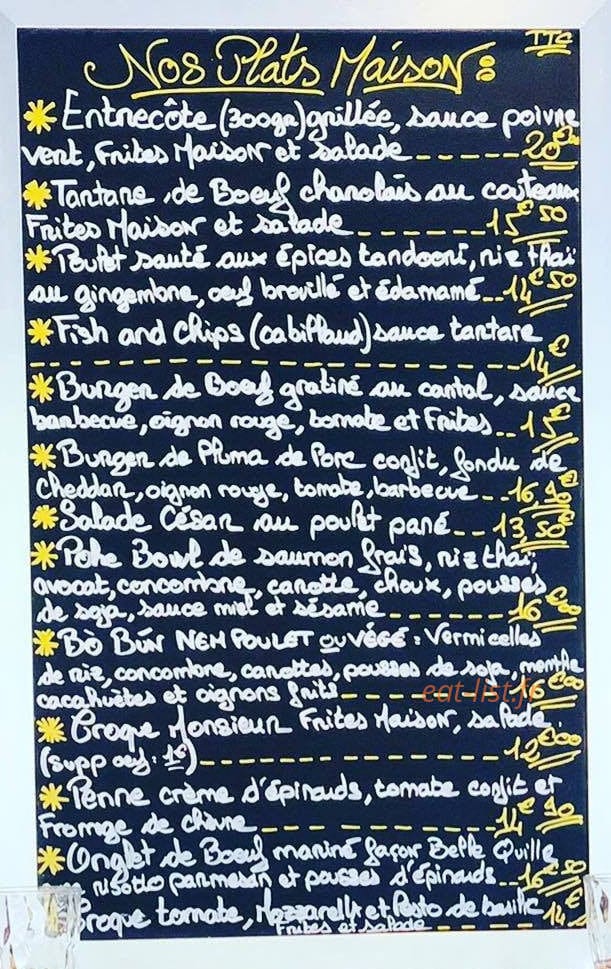 TTC
Nos Plats Maison :
* Entrecôte (300gr) grillée, sauce poivre
vert, Frites Maison et salade ------ 20€00
* Tartare de Boeuf charolais au couteau
Frites Maison et salade ------ 15€50
* Poulet sauté aux épices tandoori, riz thaï
au gingembre, oeuf brouillé et édamamé -- 14€50
* Fish and Chips (cabillaud) sauce tartare
------ 14€
* Burger de Boeuf gratiné au cantal, sauce
barbecue, oignon rouge, tomate et Frites -- 15€
* Burger de Pluma de Porc confit, fondu de
cheddar, oignon rouge, tomate, barbecue -- 16€
* Salade César au poulet pané --- 13€50
* Poke Bowl de saumon frais, riz thaï,
avocat, concombre, carotte, choux, pousses
de soja, sauce miel et sésame ------ 16€00
* Bò Bún NEM POULET ou VÉGÉ : Vermicelles
de riz, concombre, carottes, pousses de soja, menthe
cacahuètes et oignons frits ------
eat-list.fr
* Croque Monsieur Frites Maison, salade
(supp oeuf : 1€) ------ 12€00
* Penne crème d'épinards, tomate confit et
Fromage de chèvre ------ 14€90
* Onglet de Boeuf mariné façon Belle Quille
risotto parmesan et pousses d'épinards -- 16€50
Croque tomate, Mozzarella et Pesto de basilic 14
Frites et salade ------